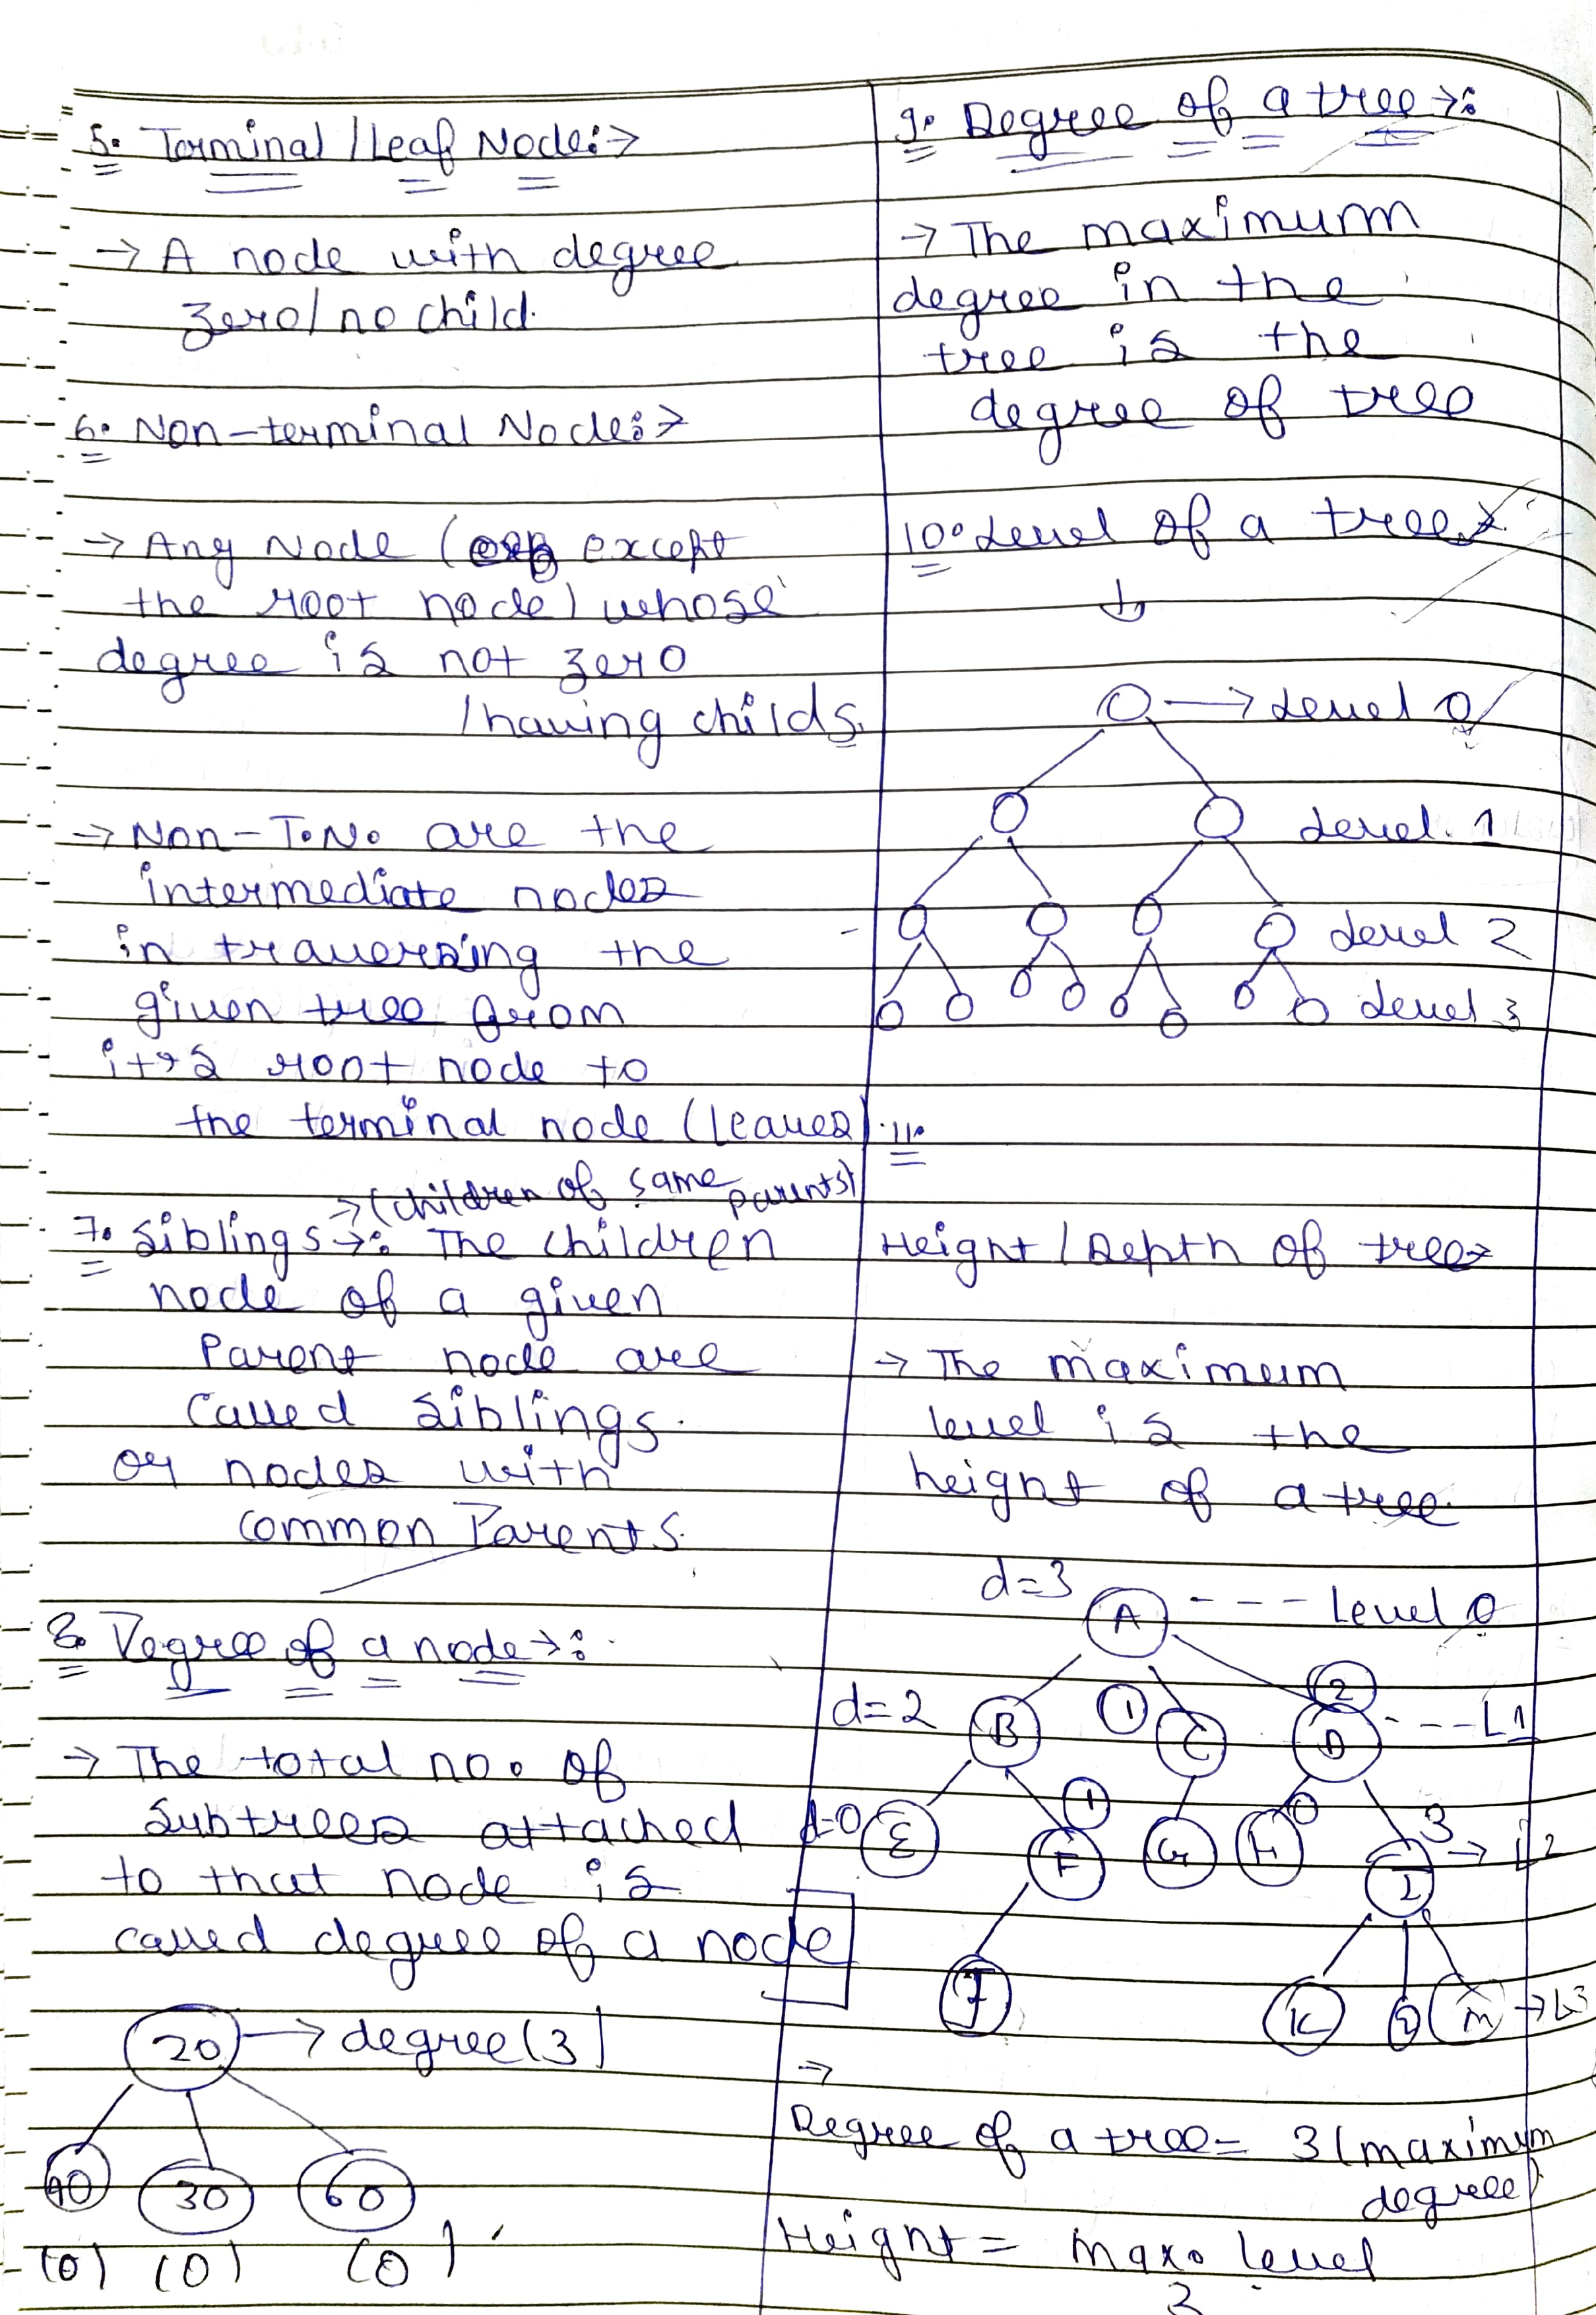 5. Terminal / Leaf Node:→
→ A node with degree
zero / no child.
6. Non-terminal Node:→
→ Any Node ( except
the root node) whose
degree is not zero
/ having childs.
→ Non-T.N. are the
intermediate nodes
in traversing the
given tree from
it's root node to
the terminal node (leaves).
→ (children of same parents)
7. Siblings →: The children
node of a given
Parent node are
called siblings.
or nodes with
common Parents.
8. Degree of a node →:
→ The total no. of
subtrees attached
to that node is
called degree of a node
20 → degree (3)
40 30 60
(0) (0) (0)
9. Degree of a tree →:
→ The maximum
degree in the
tree is the
degree of tree
10. Level of a tree
→ Level 0
Level 1
Level 2
Level 3
11.
Height / Depth of tree
→ The maximum
level is the
height of a tree.
d=3 A ---- Level 0
d=2 B 1 C 2 D --- L1
d=0 E 1 F G H 0 I 3 → L2
J K M → L3
→
Degree of a tree = 3 (maximum
degree)
Height = max. level
3